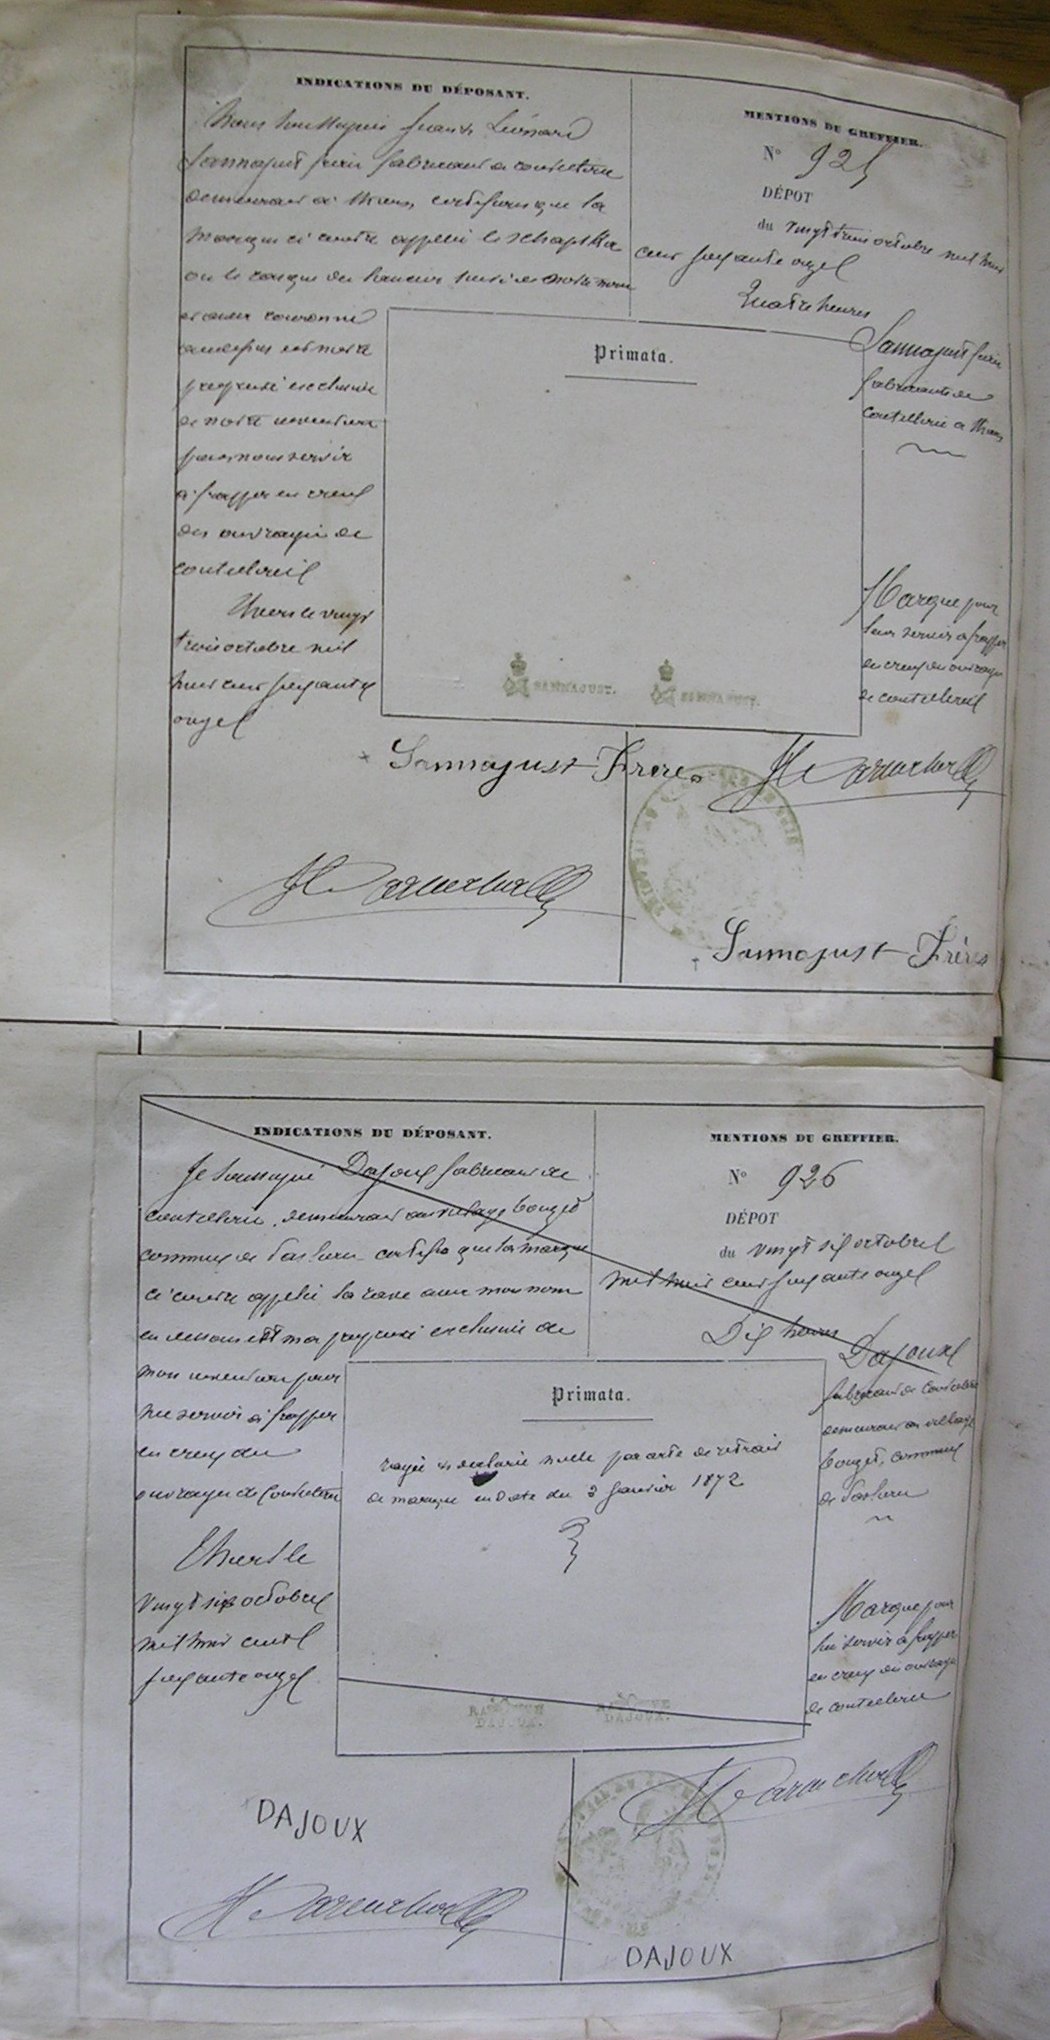 INDICATIONS DU DÉPOSANT.
Nous soussignés
Sannajust frères fabricants de coutellerie
demeurant à Thiers, certifions que la
marque ci contre appelée le schapska
ou le casque du lancier suivie de notre nom
et avec couronne
au dessus est notre
propriété exclusive
de notre invention
pour nous servir
à frapper en creux
des ouvrages de
coutellerie
Thiers le vingt
trois octobre mil
huit cent soixante
onze
MENTIONS DU GREFFIER.
N° 925
DÉPOT
du vingt trois octobre mil huit
cent soixante onze
Quatre heures
Sannajust frères
fabricants de
coutellerie à Thiers
Primata.
Marque pour
leur servir à frapper
en creux des ouvrages
de coutellerie
SANNAJUST.
SANNAJUST.
+ Sannajust Frères
+ Sannajust Frères
INDICATIONS DU DÉPOSANT.
Je soussigné Dajoux fabricant de
coutellerie, demeurant au village
commune de certifie que la marque
ci contre appelée la rave avec mon nom
en dessous est ma propriété exclusive de
mon invention pour
me servir à frapper
en creux des
ouvrages de coutellerie
Thiers le
vingt six octobre
mil huit cent
soixante onze
MENTIONS DU GREFFIER.
N° 926
DÉPOT
du vingt six octobre
mil huit cent soixante onze
Dix heures
Dajoux
fabricant de coutellerie
demeurant au village
commune
de
Primata.
rayée et déclarée nulle par acte de retrait
de marque en date du 3 janvier 1872
Marque pour
lui servir à frapper
en creux des ouvrages
de coutellerie
DAJOUX.
DAJOUX.
DAJOUX
DAJOUX